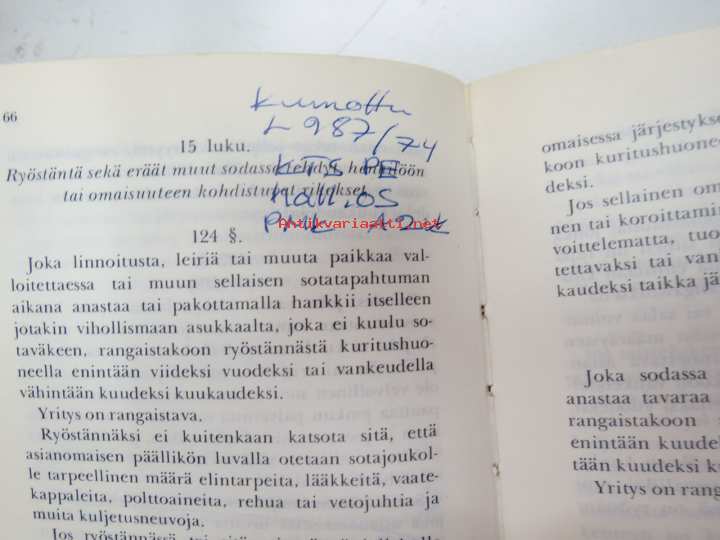 66
Kumottu
L 987/74
KTS PE
hall.os
15 luku.
Ryöstäntä sekä eräät muut sodassa tehdyt, henkilöön
tai omaisuuteen kohdistuvat rikokset
Antikvariaatti.net
124 §.
Joka linnoitusta, leiriä tai muuta paikkaa val-
loitettaessa tai muun sellaisen sotatapahtuman
aikana anastaa tai pakottamalla hankkii itselleen
jotakin vihollismaan asukkaalta, joka ei kuulu so-
taväkeen, rangaistakoon ryöstännästä kuritushuo-
neella enintään viideksi vuodeksi tai vankeudella
vähintään kuudeksi kuukaudeksi.
Yritys on rangaistava.
Ryöstännäksi ei kuitenkaan katsota sitä, että
asianomaisen päällikön luvalla otetaan sotajoukol-
le tarpeellinen määrä elintarpeita, lääkkeitä, vaate-
kappaleita, polttoaineita, rehua tai vetojuhtia ja
muita kuljetusneuvoja.
Jos ryöstännässä tai
omaisessa järjestykse
koon kuritushuone
deksi.
Jos sellainen omai
nen tai koroittamin
voittelematta, tuo
tettavaksi tai vank
kaudeksi taikka jä
Joka sodassa
anastaa tavaraa
rangaistakoon
enintään kuudek
tään kuudeksi k
Yritys on rang